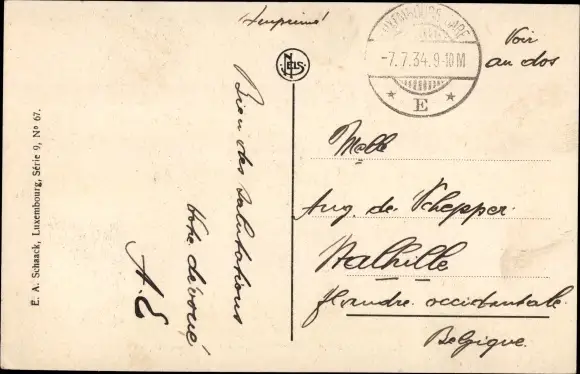 Imprimé
E. A. Schaack, Luxembourg, Série 9, Nº 67.
Bien des salutations
Votre dévoué
A. E
NELS
LUXEMBOURG-GARE
-7.7.34.9-10M
* E *
Voir
au dos
Melle
Aug. de Schepper
Stalhille
flandre occidentale
Belgique.